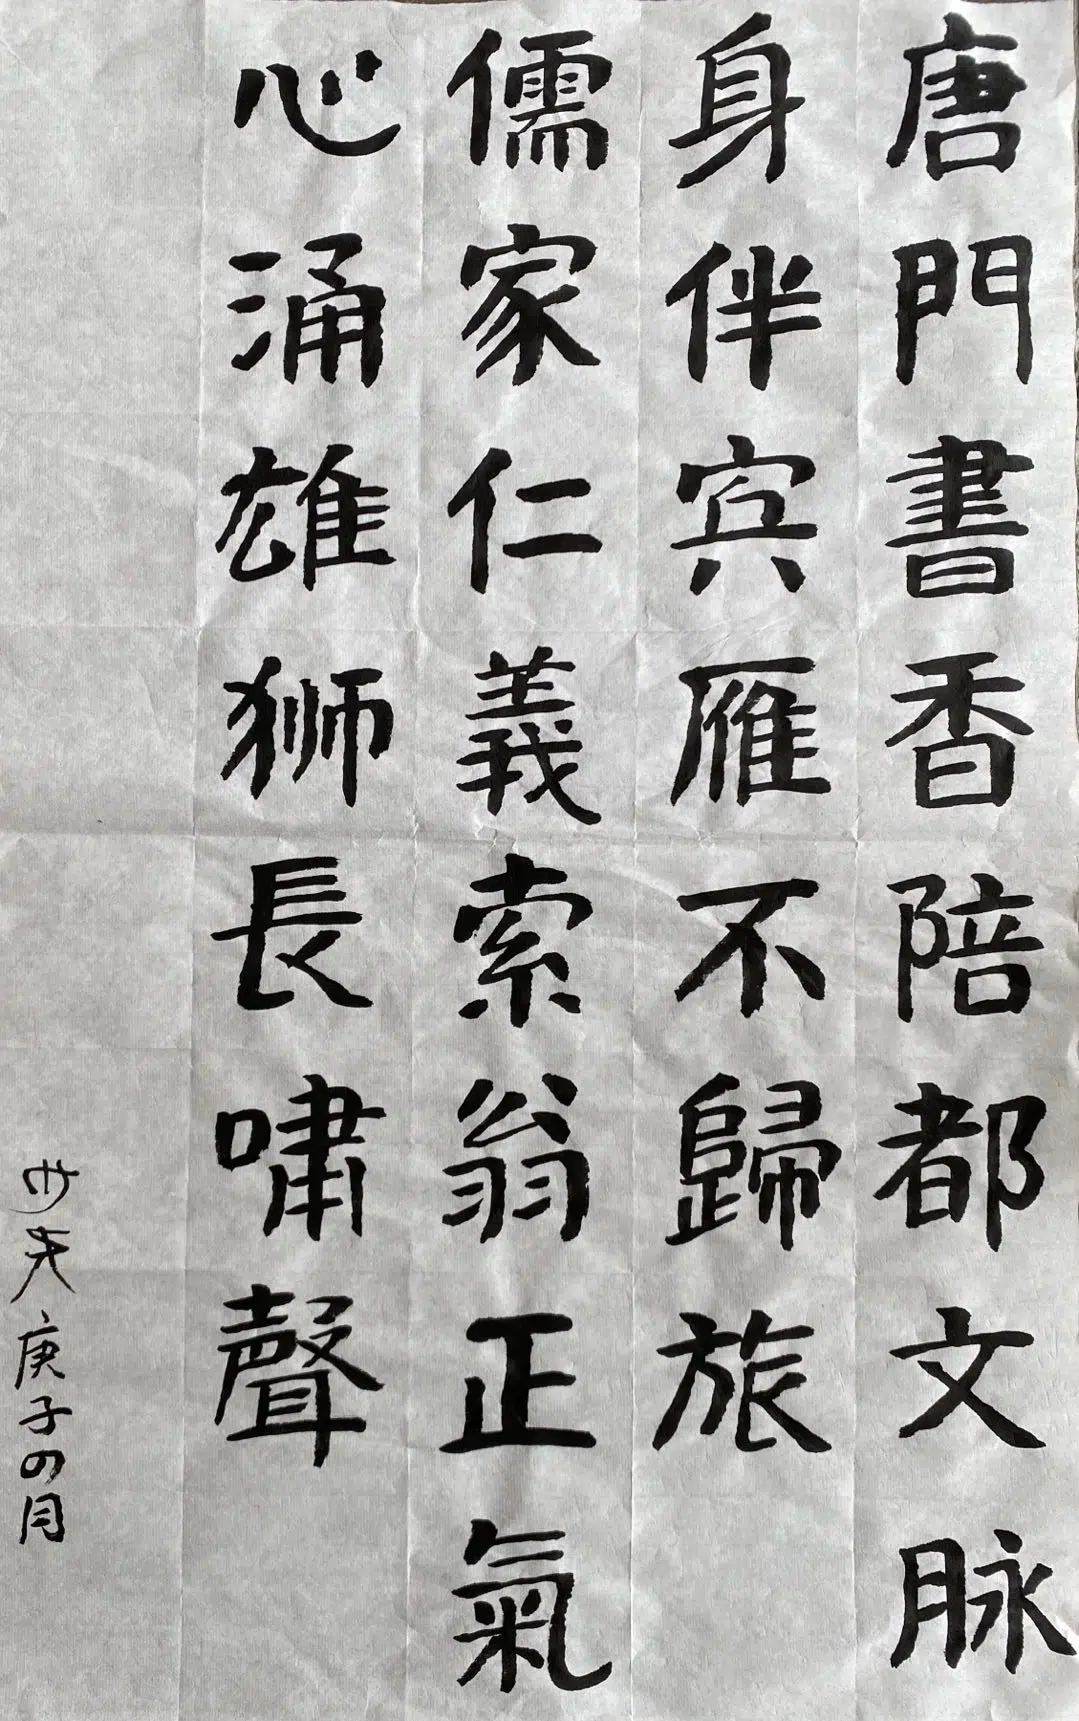 唐門書香陪都文脉
身伴宾雁不歸旅
儒家仁義索翁正氣
心涌雄狮長啸聲
庚子四月